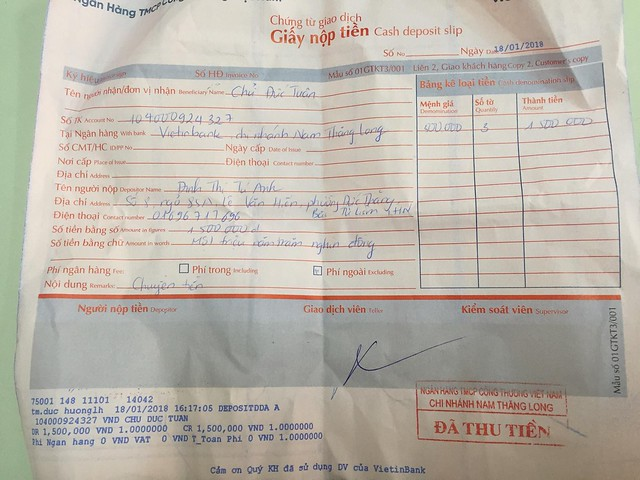 Ngân Hàng TMCP Công
Chứng từ giao dịch
Giấy nộp tiền Cash deposit slip
Số No Ngày Date 18/01/2018
Ký hiệu Số HĐ Invoice No Mẫu số 01GTKT3/001 Liên 2, Giao khách hàng Copy 2, Customer's copy
Tên người nhận/đơn vị nhận Beneficiary Name Chu Đức Tuân
Số TK Account No 104000924327
Tại Ngân hàng With bank Vietinbank, chi nhánh Nam Thăng Long
Số CMT/HC ID/PP No Ngày cấp Date of Issue
Nơi cấp Place of Issue Điện thoại Contact number
Địa chỉ Address
Tên người nộp Depositor Name Đinh Thị Tú Anh
Địa chỉ Address Số 8, ngõ Lê Văn Hiến, phường Đức Thắng
Bắc Từ Liêm, HN
Điện thoại Contact number 01696717696
Số tiền bằng số Amount in figures 1 500 000 đ
Số tiền bằng chữ Amount in words Một triệu năm trăm nghìn đồng
Phí ngân hàng Fees Phí trong Including Phí ngoài Excluding
Nội dung Remarks Chuyển tiền
Bảng kê loại tiền Cash denomination slip
Mệnh giá Số tờ Thành tiền
Denomination Quantity Amount
3 1 500 000
Người nộp tiền Depositor Giao dịch viên Teller Kiểm soát viên Supervisor
Mẫu số 01GTKT3/001
75001 148 11101 14042
tm.duc huonglh 18/01/2018 16:17:05 DEPOSITDDA A
104000924327 VND CHU DUC TUAN
DR 1,500,000 VND 1.0000000 CR 1,500,000 VND 1.0000000
Phi Ngan hang 0 VND VAT 0 VND T_Toan Phi 0 VND 1.0000000
NGÂN HÀNG TMCP CÔNG THƯƠNG VIỆT NAM
CHI NHÁNH NAM THĂNG LONG
ĐÃ THU TIỀN
Cảm ơn Quý KH đã sử dụng DV của VietinBank